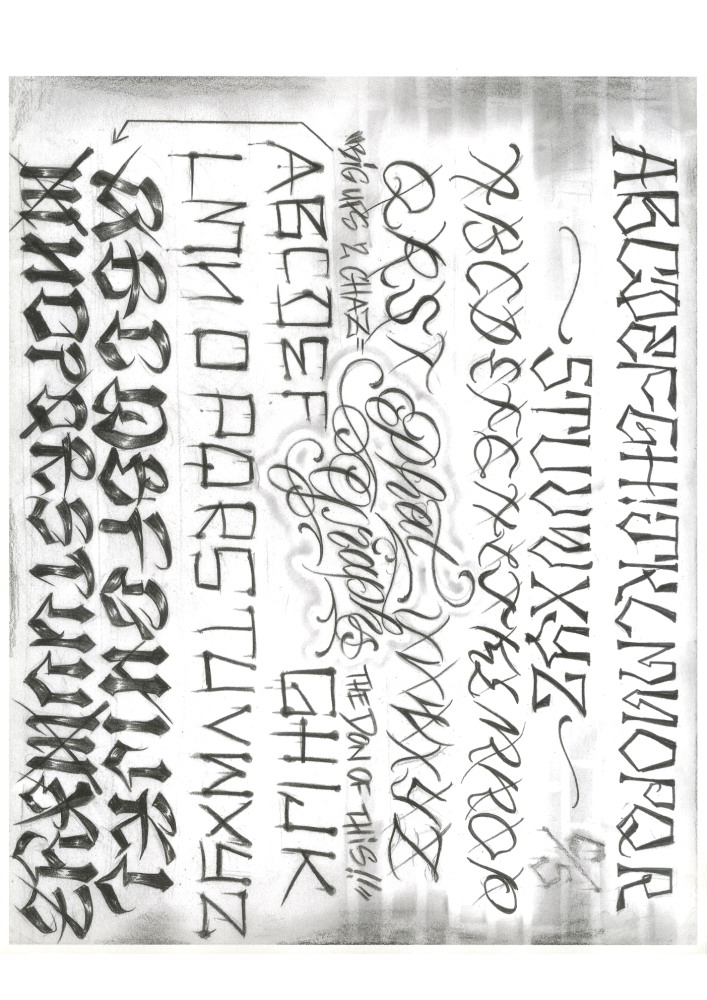 ABCDEFGHIJKLMNOPQR
STUVWXYZ
ABCDEFGHIJKLMNOP
QRST UVWXYZ
Phat
"BIG UPS 2 CHAZ = THE DON OF THIS!!"
ABCDEF GHIJK
LMNOPQRSTUVWXYZ
ABCDEFGHIJKL
MNOPQRSTUVWXYZ